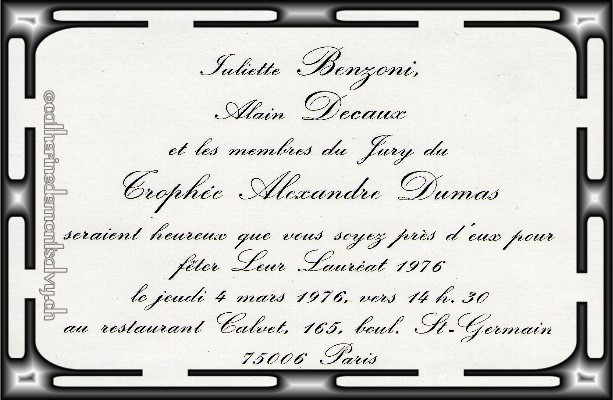 Juliette Benzoni,
Alain Decaux
et les membres du Jury du
Trophée Alexandre Dumas
seraient heureux que vous soyez près d'eux pour
fêter Leur Lauréat 1976
le jeudi 4 mars 1976, vers 14 h. 30
au restaurant Calvet, 165, boul. St-Germain
75006 Paris
©catherinedemontsalvy.ch